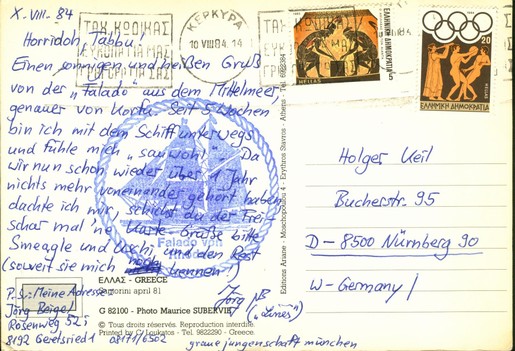 X-VIII-84
Horridoh Tabbu!
Einen sonnigen und heißen Gruß
von der "Falado" aus dem Mittelmeer,
genauer von Korfu. Seit 5 Wochen
bin ich mit dem Schiff unterwegs
und fühle mich "sauwohl". Da
wir nun schon wieder über 1 Jahr
nichts mehr voneinander gehört haben,
dachte ich mir, schickst du der Frei-
schar mal 'ne Karte. Grüße bitte
Smeagle und Uschi, und den Rest
(soweit sie mich noch kennen!)
Jörg
P.S.: Meine Adresse:
Jörg Beigel
Rosenweg 52
8192 Geretsried 1
graue jungenschaft münchen
Falado von
ΤΑΧ ΚΩΔΙΚΑΣ
ΚΕΡΚΥΡΑ
10 VIII 84. 14
ΤΑΧ ΚΩΔΙΚΑΣ
ΕΛΛΗΝΙΚΗ ΔΗΜΟΚΡΑΤΙΑ
HELLAS
5
20
ΕΛΛΗΝΙΚΗ ΔΗΜΟΚΡΑΤΙΑ
Holger Keil
Bucherstr. 95
D-8500 Nürnberg 90
W-Germany
ΕΛΛΑΣ - GREECE
april 81
G 82100 - Photo Maurice SUBERVIE
© Tous droits réservés. Reproduction interdite.
Printed by C. Loukatos - Tel. 9822290 - Greece.
Editions Ariane - Moschopoulou 4 - Erythros Stavros - Athens - Tel.